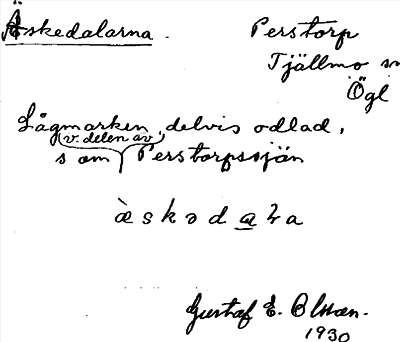 Äskedalarna.
Perstorp
Tjällmo sn
Ögl
Lågmarken, delvis odlad,
(v. delen av)
som Perstorpssjön
æ̀ skədaɽa
Gustaf E. Olsson.
1930